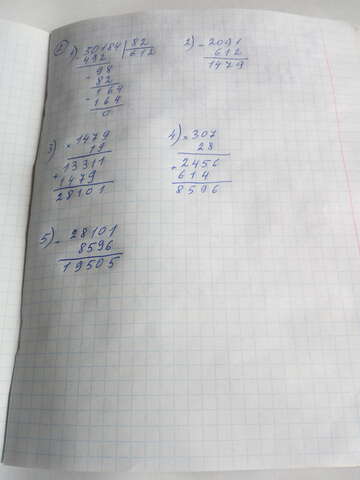 2) 1) - 50184 | 82
492 612
- 98
82
- 164
164
0
2) - 2091
612
1479
3) × 1479
19
+ 13311
1479
28101
4) × 307
28
+ 2456
614
8596
5) - 28101
8596
19505